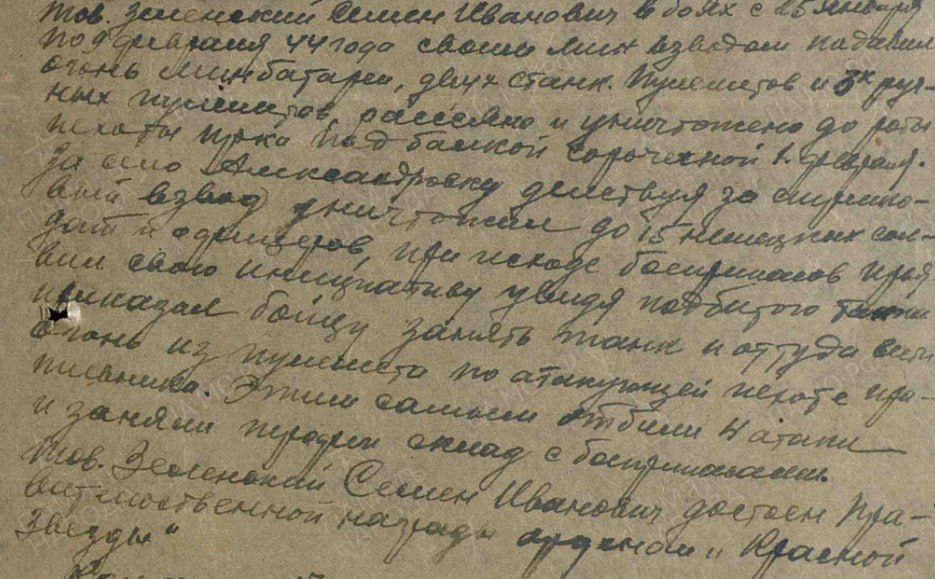 тов. Зеленский Семен Иванович в боях с 25 января
по 9 февраля 44 года своим мин взводом подавил
огонь минбатареи, двух станк. пулеметов и 3х руч-
ных пулеметов, рассеяно и уничтожено до роты
пехоты пр-ка под балкой Сорочечной 1 февраля.
За село Александровку действуя за стрелко-
вый взвод уничтожил до 15 немецких сол-
дат и офицеров, при исходе боеприпасов прая
вил свою инициативу увидя подбитого танка
приказал бойцу занять танк и оттуда вести
огонь из пулемета по атакующей пехоте про-
тивника. Этим самым отбили 4 атаки
и заняли трофеи склад с боеприпасами.
Тов. Зеленский Семен Иванович достоен пра-
вительственной награды орденом "Красной
Звезды"